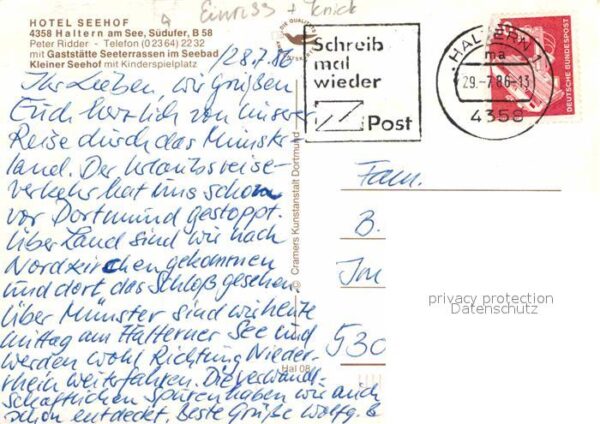 Einriss + Knick
HOTEL SEEHOF
4358 Haltern am See, Südufer, B 58
Peter Ridder - Telefon (0 23 64) 22 32
mit Gaststätte Seeterrassen im Seebad
Kleiner Seehof mit Kinderspielplatz
28.7.86
Ihr Lieben, wir grüßen
Euch herzlich von unserer
Reise durch das Münster-
land. Der Urlaubsreise-
verkehr hat uns schon
vor Dortmund gestoppt.
Über Land sind wir nach
Nordkirchen gekommen
und dort das Schloß gesehen.
Über Münster sind wir heute
mittag am Halterner See und
werden wohl Richtung Nieder-
rhein weiterfahren. Die verwandt-
schaftlichen Spuren haben wir auch
schon entdeckt. Beste Grüße Wolfg. &
© Cramers Kunstanstalt Dortmund
Hal 08
Schreib
mal
wieder
Post
HALTERN 1
ma
29.-7.86.-13
4358
DEUTSCHE BUNDESPOST
Fam.
B.
Im
530
privacy protection
Datenschutz